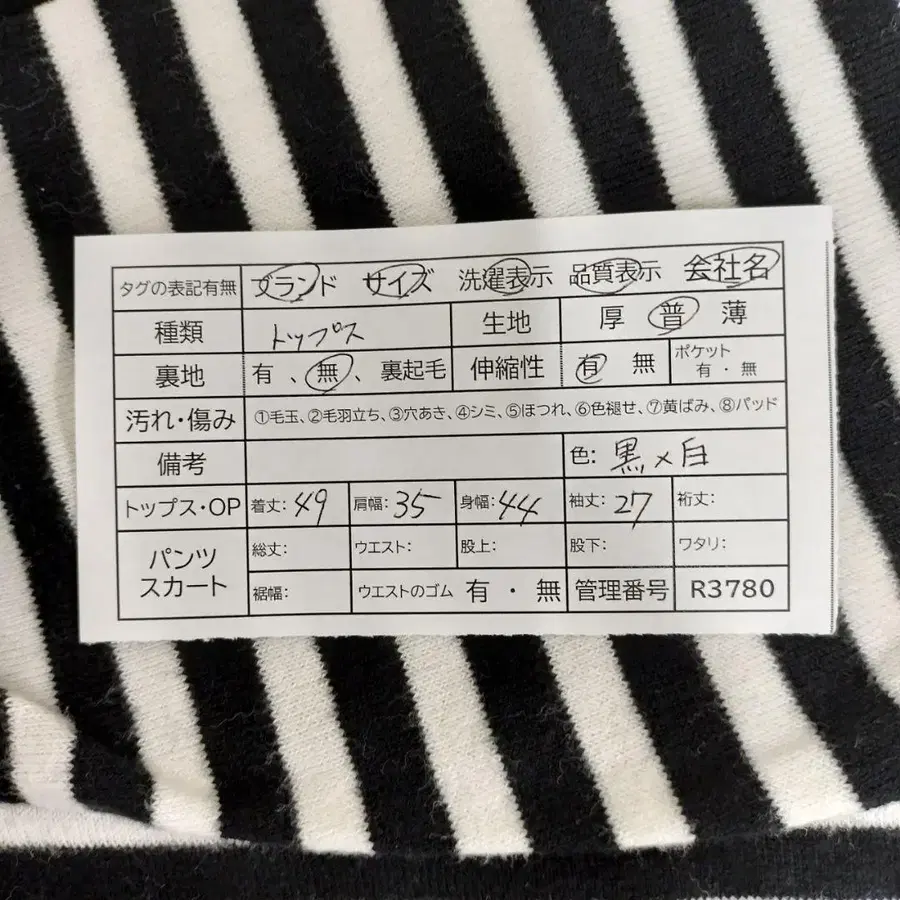 タグの表記有無 ブランド サイズ 洗濯表示 品質表示 会社名
種類 トップス 生地 厚 普 薄
裏地 有 、無、裏起毛 伸縮性 有 無 ポケット 有・無
汚れ・傷み ①毛玉、②毛羽立ち、③穴あき、④シミ、⑤ほつれ、⑥色褪せ、⑦黄ばみ、⑧パッド
備考 色: 黒×白
トップス・OP 着丈: 49 肩幅: 35 身幅: 44 袖丈: 27 裄丈:
パンツ スカート 総丈: ウエスト: 股上: 股下: ワタリ:
裾幅: ウエストのゴム 有・無 管理番号 R3780